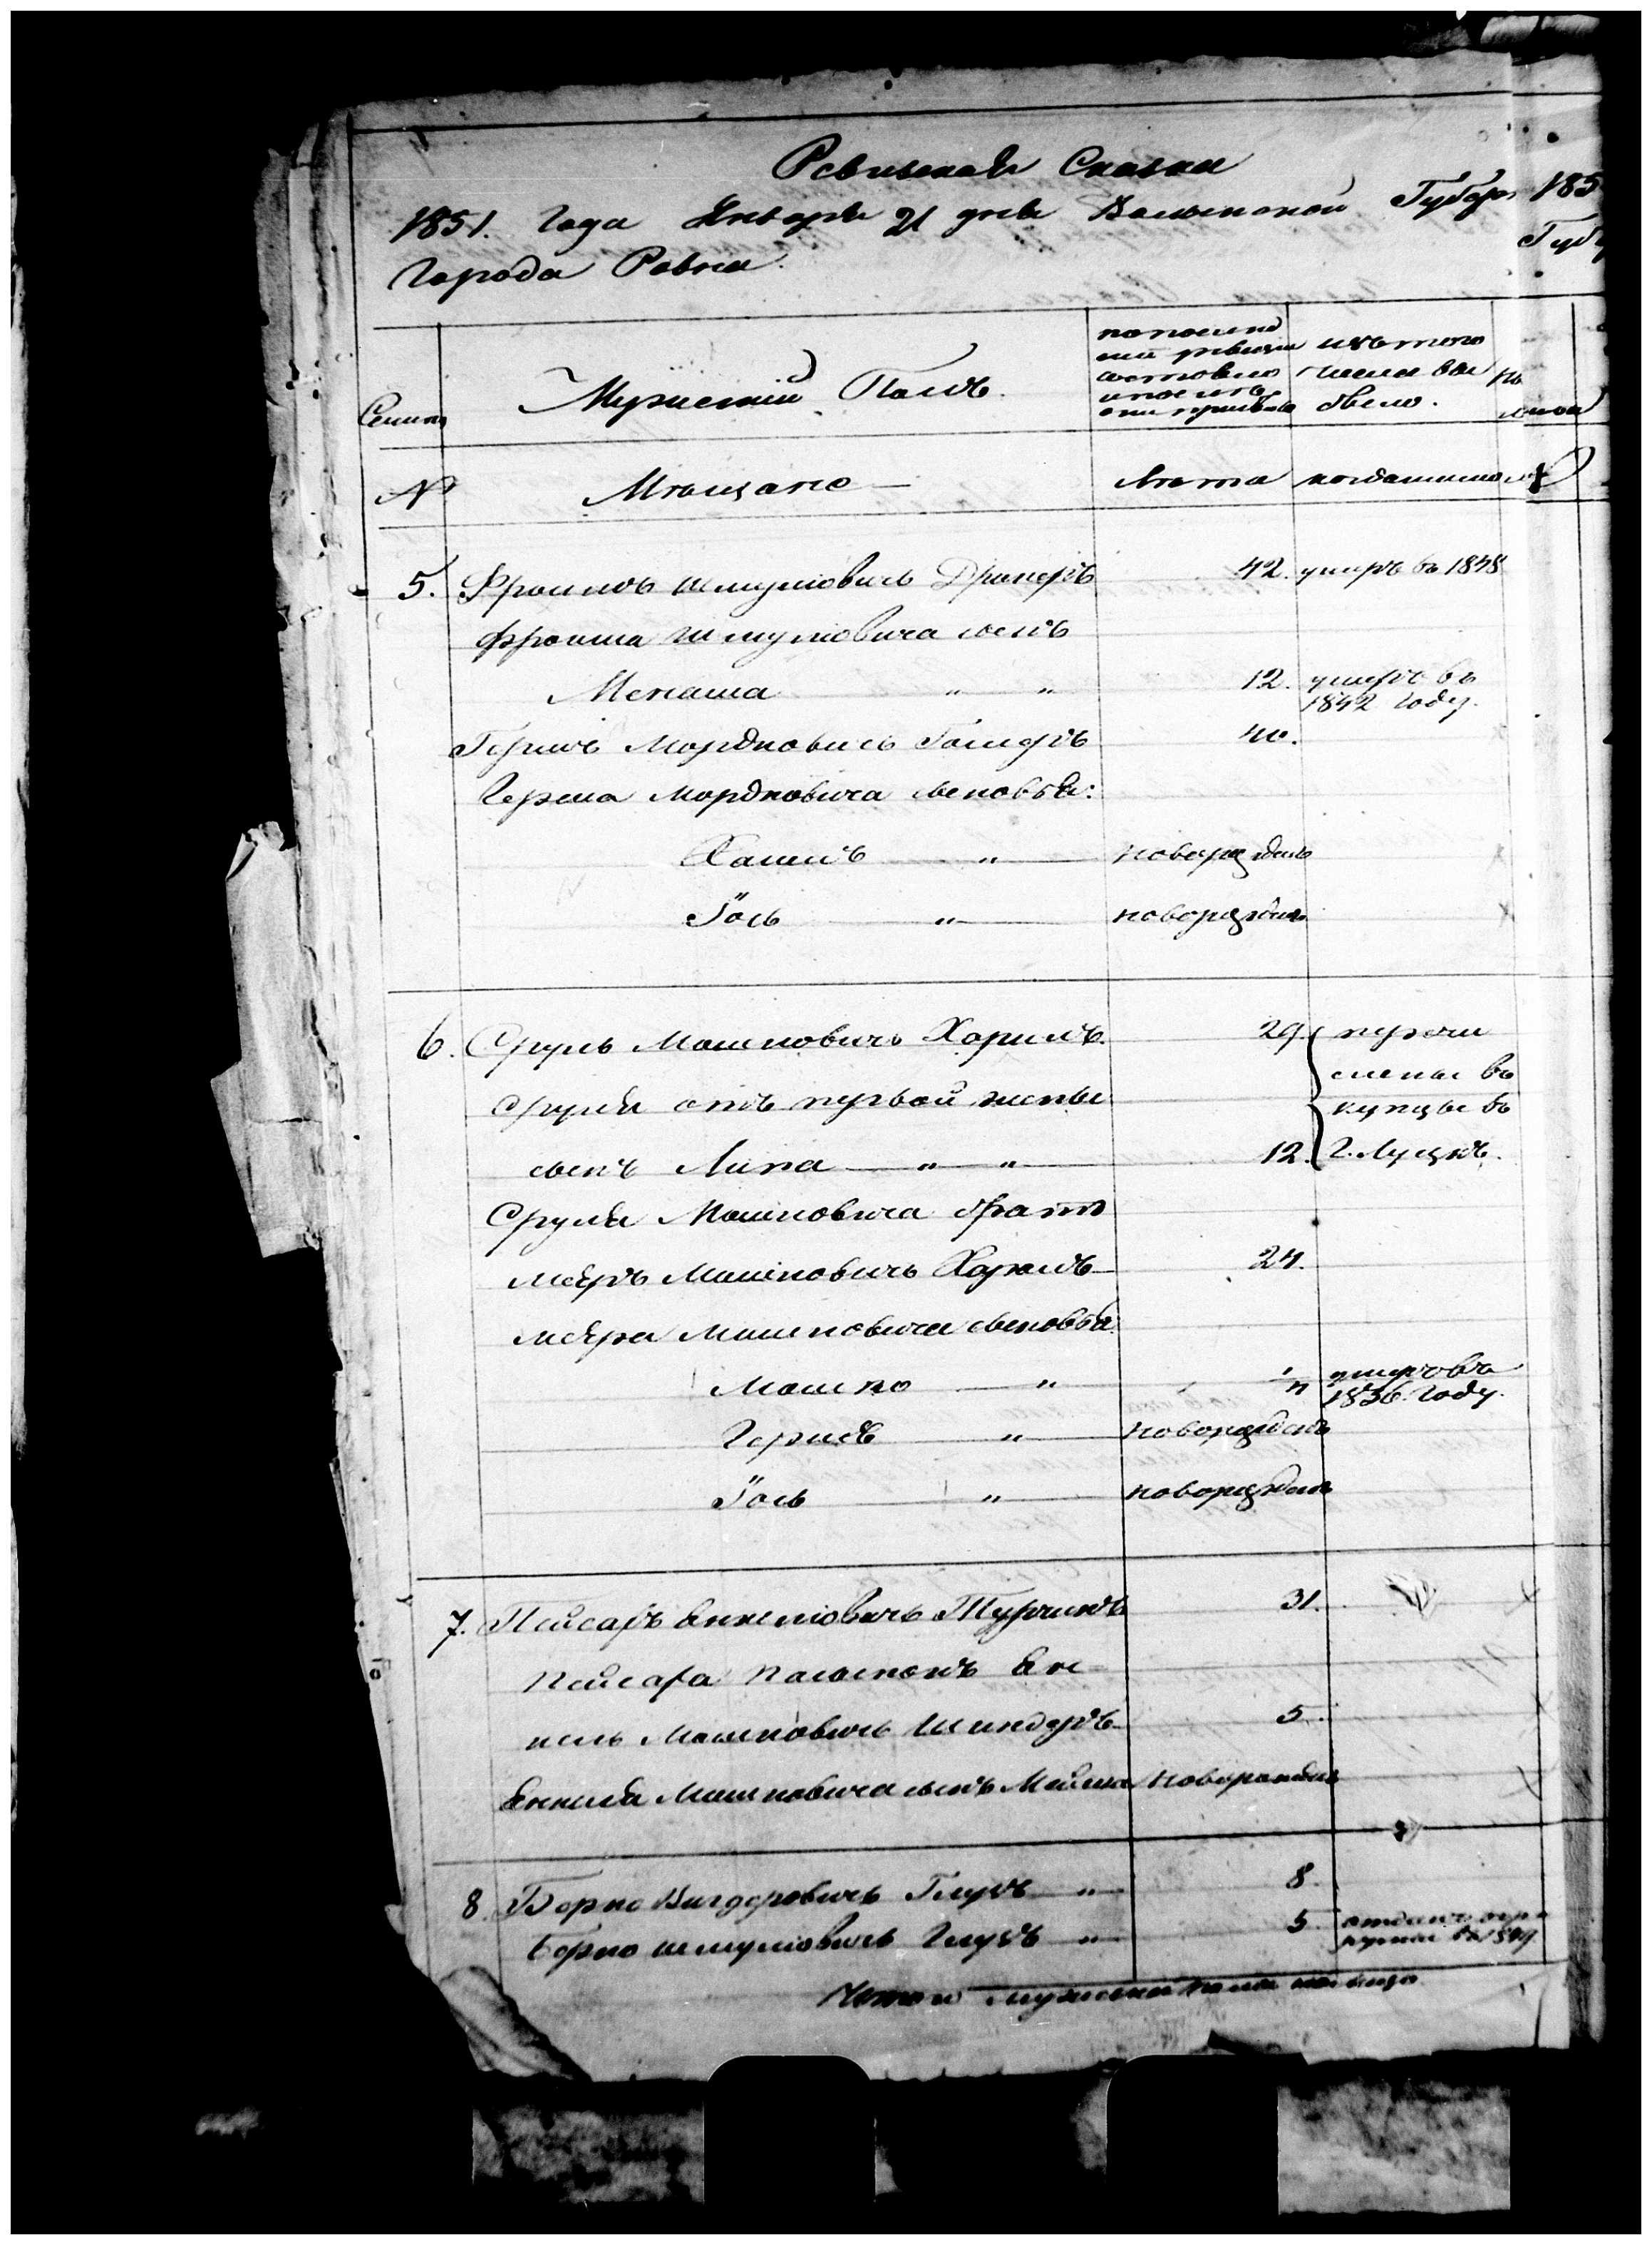 Ревиская Сказка
1851. Года Января 21 дня Волынской Губер
Города Ровна.
185
Семьи
Мужеский Полъ.
по последней ревизии состояло и после оной прибыло
изъ того числа выбыло.
№
Мѣщане
лѣта
когда именно
5. Фроимъ Шмулiовичъ Дрикеръ 42. умеръ въ 1848
Фроима Шмулiовича сынъ
Менаша " " 12. умеръ въ
1842 году.
Гершъ Мордковичъ 40.
Герша Мордковича сыновья:
Хаимъ " новорожден
Iось " новорожден
6. Сруль Мошковичъ Харикъ. 29. перечи
слены въ
Сруля отъ первой жены
купцы въ
сынъ Липа " " 12. Г. Луцкъ.
Сруля Мошковича братъ
Меръ Мошковичъ Харикъ 24.
Мера Мошковича сыновья:
Мошко " умеръ въ
1836. году.
Гершъ " новорожден
Iось " новорожден
7. Пейсахъ Янкелiовичъ Турчинъ 31.
Пейсаха Ян
кель Мошковичъ Шиндеръ 5.
Янкеля Мошковича сынъ Мойша новорожден
8. Берко Вигдоровичъ Глузъ " 8.
Берко Шмулiовичъ Глузъ " 5. отданъ въ ре
круты въ 1849
Итого мужеска пола на лицо